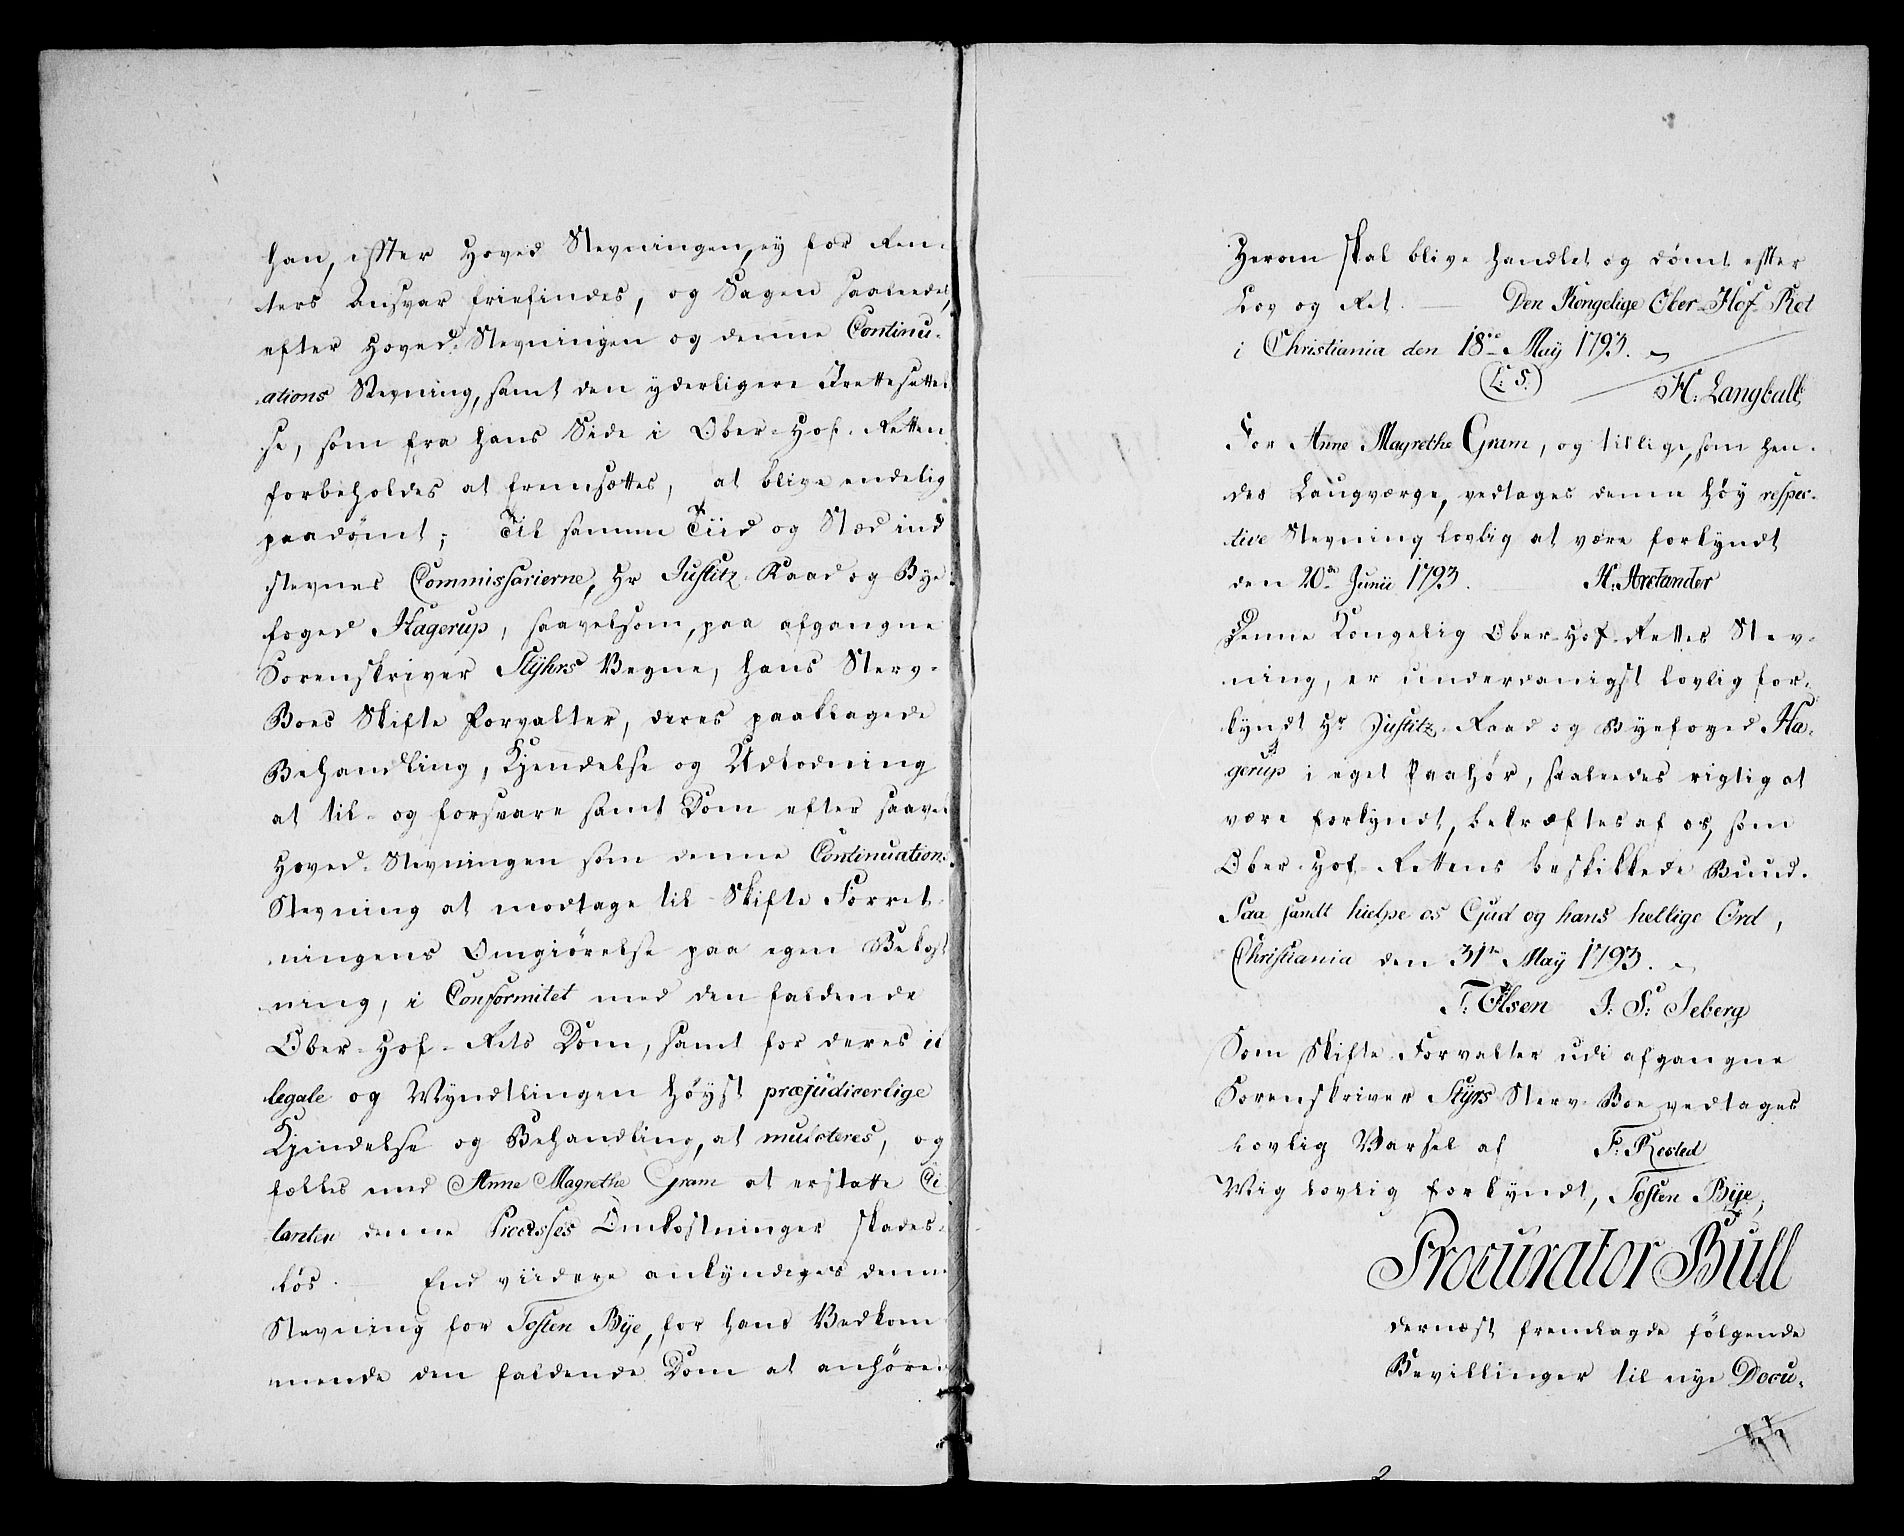 han, efter Hoved Stevningen, ey for Ren-
ters Ansvar friefindes, og Sagen saaledes,
efter Hoved-Stevningen og denne Continu-
ations Stevning, samt den yderligere Irettesettel-
se, som fra hans Side i Ober-Hof-Retten
forbeholdes at fremsættes, at blive endelig
paadømt; Til samme Tiid og Stæd ind
stevnes Commissarierne, Hr Justitz-Raad og Bye
foged Hagerup, saavelsom, paa afgangne
Sorenskriver Stÿhrs Vegne, hans Sterv-
Boes Skifte Forvalter, deres paaklagede
Behandling, Kjendelse og Udlodning
at til- og forsvare samt Dom efter saavel
Hoved-Stevningen som denne Continuations
Stevning at modtage til Skifte Forret-
ningens Omgiørelse paa egen Bekost
ning, i Conformitet med den faldende
Ober-Hof-Rets Dom, samt for deres il
legale og Myndtlingen høyst præjudiceerlige
Kjendelse og Behandling, at mulcteres, og
fældes med Anne Magrethe Gram at erstatte Ci
tanten denne Processes Omkostninger skades-
løs. End viidere ankyndiges denne
Stevning for Tosten Bÿe, for hans Vedkom
mende den faldende Dom at anhøre.
Herom skal blive handlet og dømt efter
Lov og Ret. Den Kongelige Ober-Hof-Ret
i Christiania den 18de Maÿ 1793.
(L. S.)
H. Langball
For Anne Magrethe Gram, og tillige, som hen-
des Laugværge, vedtages denne høy respec-
tive Stevning lovlig at være forkyndt
den 20de Junii 1793. H. Arstander
Denne Kongelig Ober-Hof-Rettes Stev-
ning, er underdanigst lovlig for-
kyndt Hr Justitz-Raad og Byefoged Ha-
gerup i eget Paahør, saaledes rigtig at
være forkyndt, bekræftes af os, som
Ober-Hof-Rettens beskikkede Buud.
Saa sandt hielpe os Gud og hans hellige Ord,
Christiania den 31te Maÿ 1793.
T. Olsen J: S: Seberg
Som Skifte-Forvalter udi afgangne
Sorenskriver Stÿrs Sterv-Boe vedtages
lovlig Varsel af F. Rested
Mig lovlig forkyndt, Tosten Bÿe,
Procurator Bull
dernæst fremlagde følgende
Bevillinger til nye Docu-